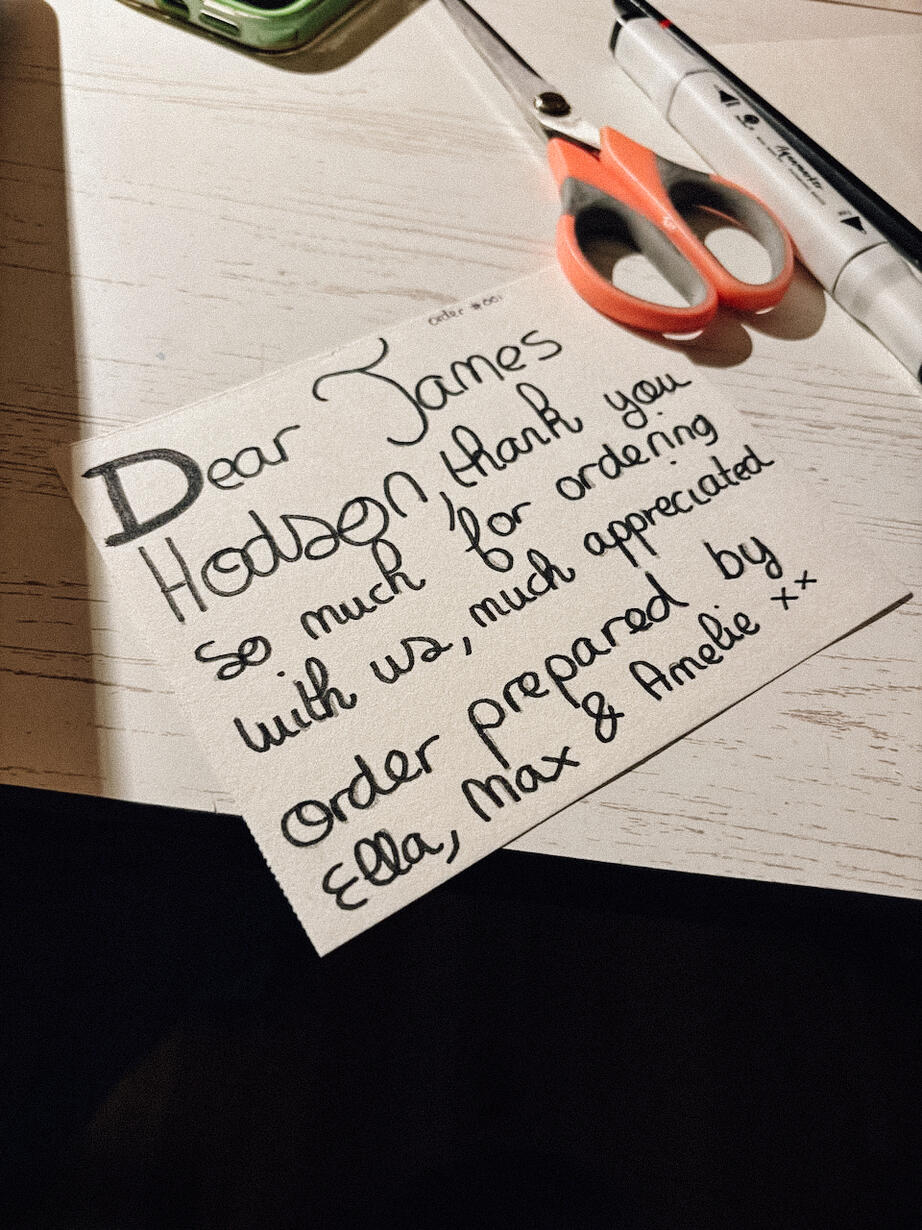 order #001
Dear James
Hodson, thank you
so much for ordering
with us, much appreciated
order prepared by
Ella, Max & Amelie xx